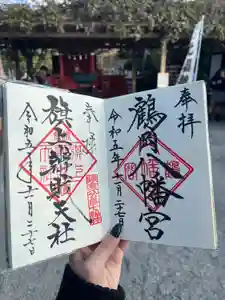 奉拝
鶴岡八幡宮
令和五年十一月二十七日
奉拝
旗上辨財天社
令和五年十一月二十七日